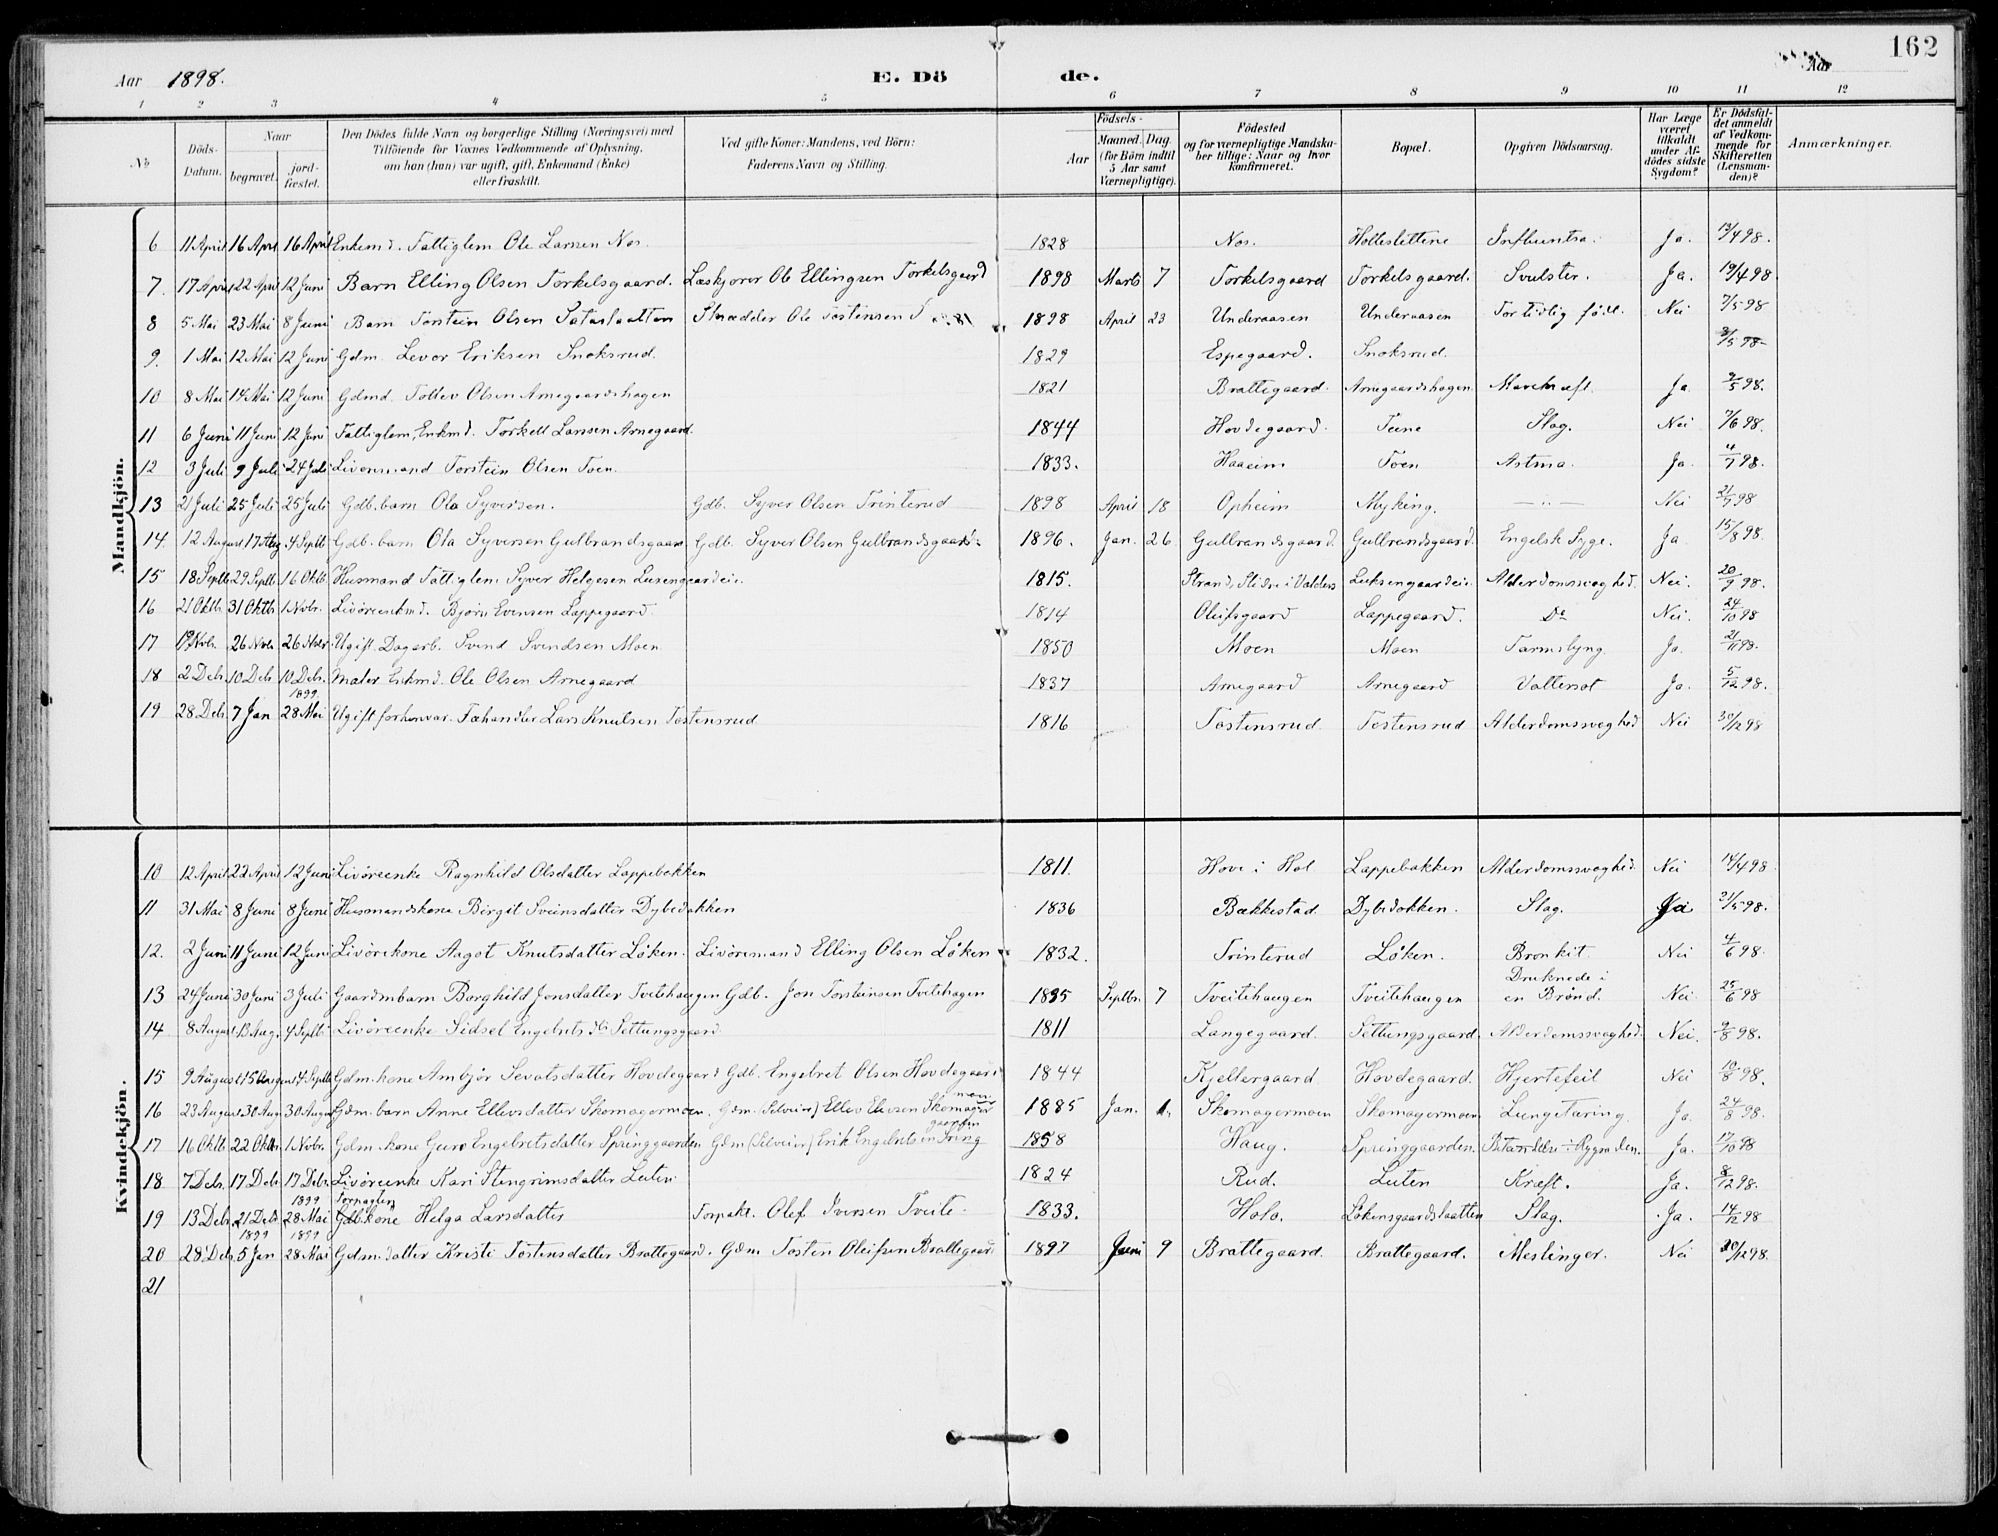 162
Aar 1898. E. Dö de. Aar
1 2 3 4 5 6 7 8 9 10 11 12
No
Döds-Datum.
Naar
begravet.
jord-fæstet.
Den Dödes fulde Navn og borgerlige Stilling (Næringsvei) med
Tilföiende for Voxnes Vedkommende af Oplysning,
om han (hun) var ugift, gift, Enkemand (Enke)
eller fraskilt.
Ved gifte Koner: Mandens, ved Börn:
Faderens Navn og Stilling.
Födsels-
Aar
Maaned. Dag.
(for Börn indtil
5 Aar samt
Værnepligtige).
Födested
og for værnepligtige Mandska-
ber tillige: Naar og hvor
konfirmeret.
Bopæl.
Opgiven Dödsaarsag.
Har Læge
været
tilkaldt
under Af-
dödes sidste
Sygdom?
Er Dödsfal-
det anmeldt
af Vedkom-
mende for
Skifteretten
(Lensman-
den)?
Anmærkninger.
Mandkjön.
6 11 April 16 April 16 April Enkemd. Fattiglem Ole Larsen Nos. 1828 Nos. Influentsa. Ja. 13/4 98.
7. 17 April 22 April 12 Juni Barn Elling Olsen Torkelsgaard. Læskjører Ole Ellingsen Torkelsgaard 1898 Marts 7 Torkelsgaard Torkelsgaard. Svulster. Ja. 19/4 98.
8 5 Mai 23 Mai 8 Juni Barn Torstein Olsen Ole Tostensen 1898 April 23 Underaasen Underaasen For tidlig født. Nei 7/5 98
9. 1 Mai 12 Mai 12 Juni Gdm. Levor Eriksen Snoksrud. 1829 Espegaard. Snoksrud. 3/5 98
10 8 Mai 14 Mai 12 Juni Gdmd. Tollev Olsen Arnegaardshagen 1821 Brattegaard. Arnegaardshagen Ja. 9/5 98.
11 6 Juni 11 Juni 12 Juni Fattiglem, Enkmd. Torkell Larsen Arnegaard. 1844 Hovdegaard. Slag. Nei 7/6 98.
12 3 Juli 9 Juli 24 Juli Toen. Torstein Olsen 1833. Haaeim Toen Astma. Ja. 4/7 98.
13 21 Juli 25 Juli 25 Juli Gdb. barn Ola Syversen. Gdb. Syver Olsen Trinterud 1898 April 18 Opheim Myking. — " — Nei 21/7 98
14. 12 August 17 Aug 4 Septb Gdb. barn Ola Syversen Gulbrandsgaard Gdb. Syver Olsen Gulbrandsgaard. 1896. Jan. 26 Gulbrandsgaard. Gulbrandsgaard. Engelsk Syge. Ja 15/8 98.
15 18 Septb 29 Septb 16 Oktb. Husmand Fattiglem Syver Helgesen 1815. Strand, Slidre i Valders Alderdomssvaghed. Nei. 20/9 98.
16 21 Oktb. 31 Oktb. 1 Novbr. Bjørn Evensen Lappegaard. 1814 Oleifsgaard Lappegaard. Do Nei. 24/10 98
17 19 Novbr. 26 Novbr 26 Novbr. Ugift Dagarb. Svend Svendsen Moen 1850 Moen Moen Tarmslyng. Ja. 21/11 98.
18 2 Debr. 10 Debr 10 Debr. Maler Enkmd. Ole Olsen Arnegaard 1837 Arnegaard Arnegaard Vattersot Ja. 5/12 98.
19 28 Debr 7 Jan 1899 28 Mai Ugift forhenvær. Fæhandler Lars Knutsen Tostensrud 1816 Tostensrud. Tostensrud Alderdomssvaghed Nei 30/12 98
Kvindekjön.
10 12 April 22 April 12 Juni Livøreenke Ragnhild Olsdatter Lappebakken 1811. Hove i Hol Lappebakken Alderdomssvaghed. Nei 14/4 98
11 31 Mai 8 Juni 8 Juni Husmandskone Birgit Sveinsdatter Dybedokken 1836 Bækkestad. Dybedokken. Slag. 31/5 98.
12. 2 Juni 11 Juni 12 Juni Livørekone Aagot Knutsdatter Løken. Livøremand Elling Olsen Løken 1832. Trinterud Løken. Bronkit. Nei 4/6 98.
13 24 Juni 30 Juni 3 Juli Gaardmbarn Borghild Jonsdatter Tveitehaugen Gdb. Jon Torsteinsen Tveitehagen 1895 Septbr. 7 Tveitehaugen Tveitehaugen Druknede i en Brønd. Nei 25/6 98
14 8 August 13 Aug. 4 Septb Livøreenke Sidsel Engebretsdtr. Settungsgaard. 1811 Langegaard. Settungsgaard. Alderdomssvaghed. Nei. 9/8 98.
15 9 August 15 August 4 Septb Gdm. kone Ambjør Sevatsdatter Hovdegaard Gdb. Engebret Olsen Hovdegaard 1844 Kjellergaard Hovdegaard. Hjertefeil Nei 10/8 98.
16 23 August 30 Aug 30 August Gdm. barn Anne Ellevsdatter Skomagermoen. Gdm. (Selveier) Ellev Skomagermoen 1885 Jan. 1. Skomagermoen Skomagermoen Lunge Tæring. Ja. 24/8 98.
17 16 Oktb. 22 Oktbr. 1 Novbr. Gdm. kone Guro Engebretsdatter Springgaarden Gdm (Selveier) Erik Engebretsen Springgaarden 1858 Haug. Springgaarden. Rygraden. Ja. 17/10 98
18 7 Debr. 17 Debr 17 Debr. Livøreenke Kari Stengrimsdatter Luten 1824 Rud. Luten Kræft. Ja. 8/12 98.
19 13 Debr. 21 Debr 1899 28 Mai kone Helga Larsdatter Forpakt. Olef Iversen Tveite. 1833. Holo. Løkensgaardslaatten Slag. Ja. 14/12 98
20 28 Debr 1899 5 Jan 1899 28 Mai Gdm. datter Kristi Tostensdatter Brattegaard. Gdm Tosten Oleifsen Brattegaard 1897 Juni 9 Brattegaard. Brattegaard. Meslinger. Nei 30/12 98.
21